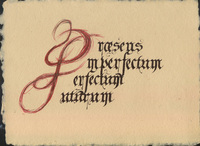 Præsens
Imperfectum
Perfectum
Futurum